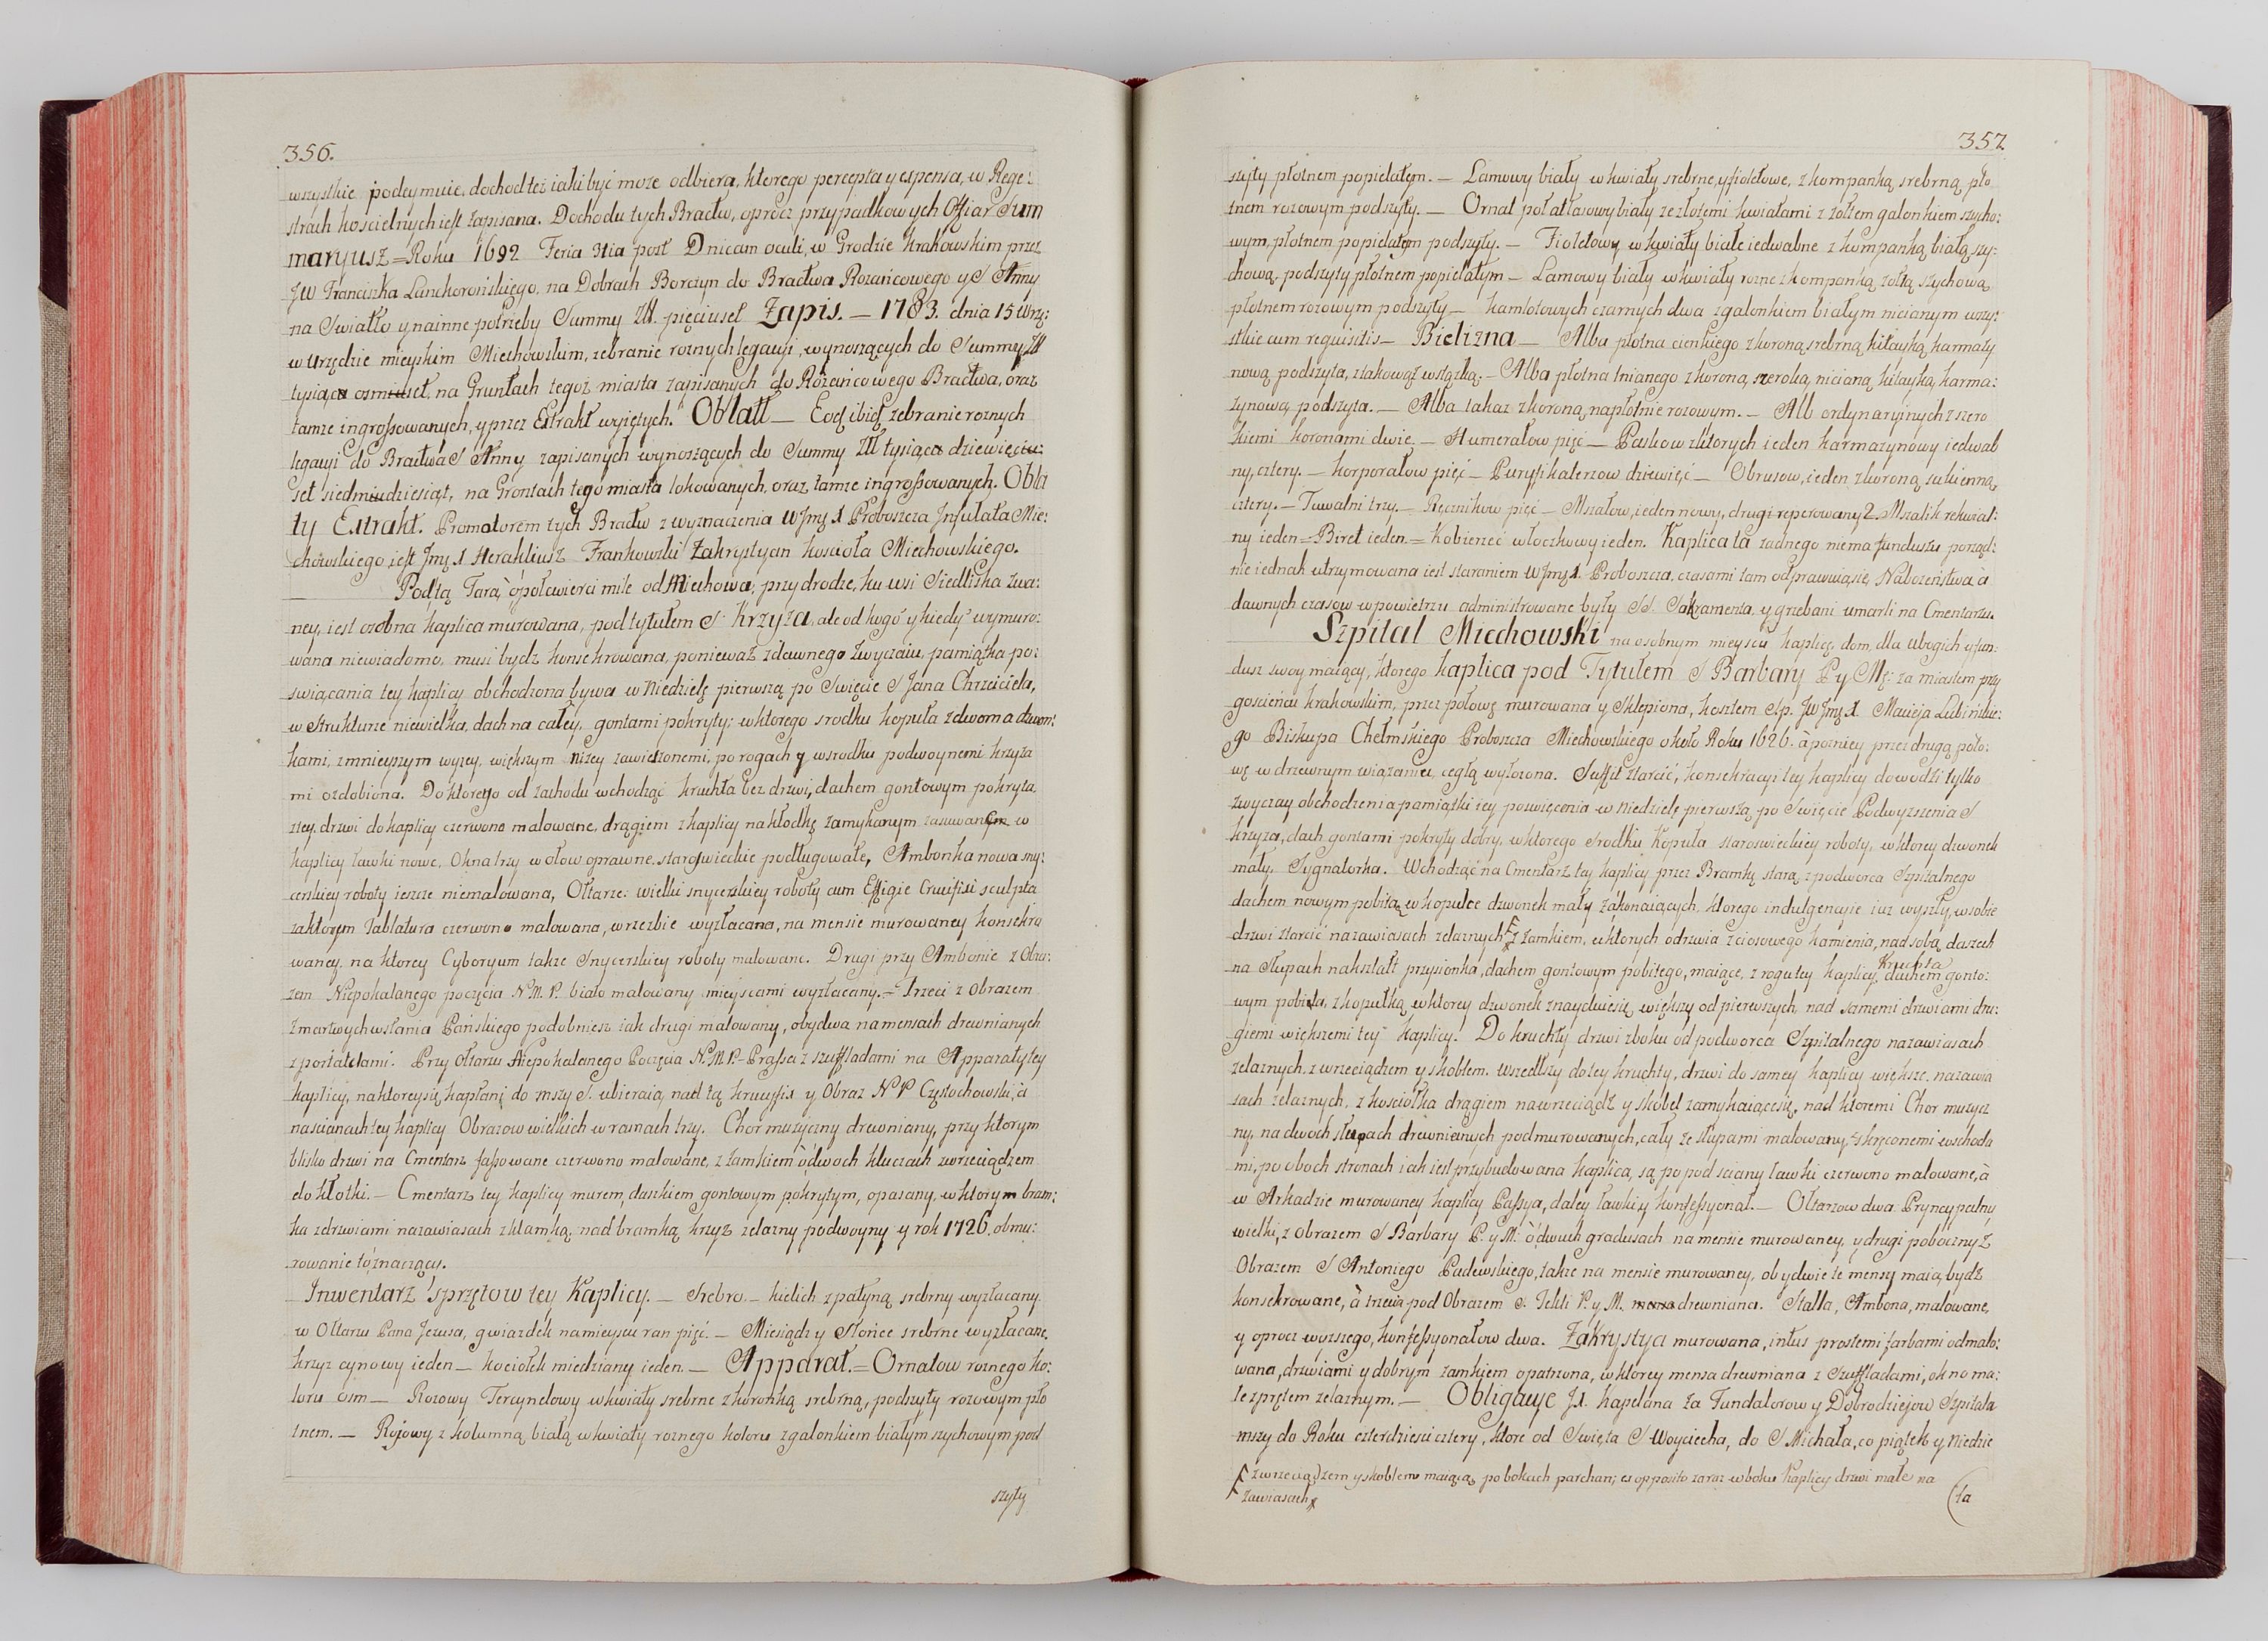 356.
wszystkie podeymuie, dochod też iaki być może odbiera, ktorego percepta y expensa, w Rege:
strach koscielnych iest zapisana. Dochodu tych Bractw, oprocz przypadkowych Offiar Sum
maryusz = Roku 1692 Feria 3tia post Dnicam oculi, w Grodzie Krakowskim przez
JW Franciszka Lanckorońskiego, na Dobrach Borczyn do Bractwa Rozańcowego y S Anny
na Swiatło y na inne potrzeby Summy Złł. pięciuset Zapis. — 1783. dnia 15 Wrz:
w Urzędzie mieyskim Miechowskim, zebranie roznych legacyi, wynoszących do Summy Złł
tysiąca osmiuset, na Gruntach tegoż miasta zapisanych do Rożańcowego Bractwa, oraz
tamze ingrossowanych, y przez Extrakt wyiętych. Oblatt — Eod ibid zebranie roznych
legacyi do Bractwa S Anny zapisanych wynoszących do Summy Złł tysiąca dziewięciu:
set siedmiudziesiąt, na Grontach tego miasta lokowanych, oraz tamze ingrossowanych. Obla
ty Extrakt. Promotorem tych Bractw z wyznaczenia W Jmę X Proboszcza Infułata Mie:
chowskiego iest Jmę X Herakliusz Frankowski Zakrystyan kosciola Miechowskiego.
Pod tą Farą, o połcwierci mile od Miechowa, przy drodze, ku wsi Siedliska zwa:
ney, iest osobna kaplica murowana, pod tytułem S Krzyża, ale od kogo y kiedy wymuro:
wana niewiadomo, musi bydz konsekrowana, ponieważ z dawnego zwyczaiu, pamiątka po:
swiącania tey kaplicy obchodzona bywa w Niedzielę pierwszą po Swięcie S Jana Chrzciciela,
w Strukturze niewielka, dach na całey, gontami pokryty; w ktorego srodku kopuła z dwoma dzwon:
kami, z mnieyszym wyzey, większym nizey zawieszonemi, po rogach y wsrodku podwoynemi krzyza
mi ozdobiona. Do ktorego od zachodu wchodząc kruchta bez drzwi, dachem gontowym pokryta,
z tey, drzwi do kaplicy czerwono malowane, drągiem z kaplicy na kłodkę zamykanym zasuwanem w
kaplicy ławki nowe, Okna trzy w ołow oprawne, staroswieckie podługowate, Ambonka nowa sny:
cerskiey roboty ieszcze niemalowana, Ołtarze: wielki snycerskiey roboty cum Effigie Crucifixi sculpta
za ktorym Tablatura czerwono malowana, w rzezbie wyzłacana, na mensie murowaney konsekro
waney, na ktorey Cyboryum takze Snycerskiey roboty malowane. Drugi przy Ambonie z Obra:
zem Niepokalanego poczęcia N. M. P. biało malowany mieyscami wyzłacany. — Trzeci z Obrazem
Zmartwychwstania Pańskiego podobniesz iak drugi malowany, obydwa na mensach drewnianych
z portatelami. Przy ołtarzu Niepokalanego Poczęcia N. M. P. Prassa z szuffladami na Apparaty tey
kaplicy, na ktorey się kapłani do mszy S. ubieraią, nad tą krucyfix y Obraz N P Częstochowski, a
na scianach tey kaplicy Obrazow wielkich w ramach trzy. Chor muzyczny drewniany, przy ktorym
blisko drzwi na Cmentarz fassowane czerwono malowane, z zamkiem o dwoch kluczach z wrzeciądzem
do kłotki. — Cmentarz tey kaplicy murem, daszkiem gontowym pokrytym, opasany, w ktorym bram:
ka z drzwiami na zawiasach z klamką, nad bramką krzyż zelazny podwoyny y rok 1726. obmu:
rowanie to znaczący.
Inwentarz sprzętow tey Kaplicy. — Srebro — kielich z patyną srebrny wyzłacany.
w Ołtarzu Pana Jezusa, gwiazdek na mieyscu ran pięć. — Miesiądz y Słońce srebrne wyzłacane.
krzyz cynowy ieden — kociołek miedziany ieden. — Apparat. = Ornatow roznego ko:
loru osm — Rozowy Tercynelowy w kwiaty srebrne z koronką srebrną, podszyty rozowym pło
tnem. — Rożowy z kolumną białą w kwiaty roznego koloru z galonkiem białym szychowym pod
szyty
357
szyty płotnem popielatym. — Lamowy biały w kwiaty srebrne, y fioletowe, z kompanką srebrną, pło
tnem rozowym podszyty. — Ornat połatłasowy biały ze złotemi kwiatami z żołtem galonkiem szycho:
wym, płotnem popielatym podszyty. — Fioletowy w kwiaty białe iedwabne z kompanką białą szy:
chową, podszyty płotnem popielatym — Lamowy biały w kwiaty rozne z kompanką zołtą szychową
płotnem rozowym podszyty — kamlotowych czarnych dwa z galonkiem białym nicianym wszy:
stkie cum requisitis — Bielizna — Alba płotna cienkiego z koroną srebrną, kitayką karmazy
nową podszyta, z takowąż wstązką. — Alba płotna lnianego z koroną, szeroką, nicianą, kitayką, karma:
zynową podszyta. — Alba takaz z koroną, na płotnie rozowym. — Alb ordynaryinych z szero
kiemi koronami dwie — Humerałow pięć — Paskow z ktorych ieden karmazynowy iedwab
ny, cztery. — korporałow pięć — Puryfikaterzow dziewięć — Obrusow, ieden z koroną sukienną,
cztery. — Tuwalni trzy. — Ręcznikow pięć — Mszałow, ieden nowy, drugi reperowany 2. Mszalik rekwial:
ny ieden = Biret ieden. = Kobierzec włoczkowy ieden. Kaplica ta zadnego niema funduszu, porząd:
nie iednak utrzymowana iest staraniem W Jmę X. Proboszcza, czasami tam odprawuią się Nabozeństwa, a
dawnych czasow w powietrzu administrowane były SS. Sakramenta, y grzebani umarli na Cmentarzu.
Szpital Miechowski na osobnym mieyscu kaplicę, dom, dla ubogich y fun:
dusz swoy maiący, ktorego kaplica pod Tytułem S Barbary P y M: za miastem przy
goscieńcu krakowskim, przez połowę murowana y sklepiona, kosztem śp. JW Jmę X. Macieja Lubińskie:
go Biskupa Chełmskiego Proboszcza Miechowskiego około Roku 1626. a pozniey przez drugą poło:
wę w drzewnym wiązaniu, cegłą wyłozona. Suffit z tarcic, konsekracyi tey kaplicy dowodzi tylko
zwyczay obchodzenia pamiątki iey poswięcenia w Niedzielę pierwszą po Swięcie Podwyzszenia S
krzyza, dach gontami pokryty dobry, w ktorego srodku kopuła staroswieckiey roboty, w ktorey dzwonek
mały, Sygnaturka. Wchodząc na Cmentarz tey kaplicy przez Bramkę starą, z podworca Szpitalnego
dachem nowym pobitą, w kopułce dzwonek mały zakonaiących, ktorego indulgencyie iuz wyszły, w sobie
drzwi z tarcic na zawiasach zelaznych z zamkiem, u ktorych odrzwia z ciosowego kamienia, nad sobą daszek
na słupach nakształt przysionka, dachem gontowym pobitego, maiące, z rogu tey kaplicy, Kruchta dachem gonto:
wym pobita, z kopułką, w ktorey dzwonek znayduie się, większy od pierwszych, nad samemi drzwiami dru:
giemi większemi tey kaplicy. Do kruchty drzwi z boku od podworca Szpitalnego na zawiasach
zelaznych, z wrzeciądzem y skoblem. wszedłszy do tey kruchty, drzwi do samey kaplicy większe, na zawia
sach zelaznych, z kosciołka drągiem na wrzeciądz y skobel zamykaiące się, nad ktoremi Chor muzycz
ny, na dwoch słupach drewnianych podmurowanych, cały ze słupami malowany, z skręconemi wschoda
mi, po oboch stronach iak iest przybudowana kaplica, są popod sciany ławki czerwono malowane, a
w Arkadzie murowaney kaplicy Passya, daley ławki y konfessyonał. — Ołtarzow dwa Pryncypalny
wielki, z Obrazem S Barbary P. y M. o dwuch gradusach na mensie murowaney, y drugi poboczny z
Obrazem S Antoniego Padewskiego, takze na mensie murowaney, obydwie te mensy maią bydz
konsekrowane, a trzecia pod Obrazem S. Tekli P. y M. drewniana. Stalla, Ambona, malowane,
y oprocz wyzszego, konfessyonałow dwa. Zakrystya murowana, intus prostemi farbami odmalo:
wana, drzwiami y dobrym zamkiem opatrzona, w ktorey mensa drewniana z Szuffladami, okno ma:
łe z prętem zelaznym. — Obligacye JX. kapelana za Fundatorow y Dobrodziejow Szpitala
mszy do Roku czterdziesci cztery, ktore od Swięta S Woyciecha, do S Michała, co piątek y Niedzie
z wrzeciądzem y skoblem maiącą, po bokach parchan; ex opposito zaraz w boku kaplicy drzwi małe na
zawiasach
(la